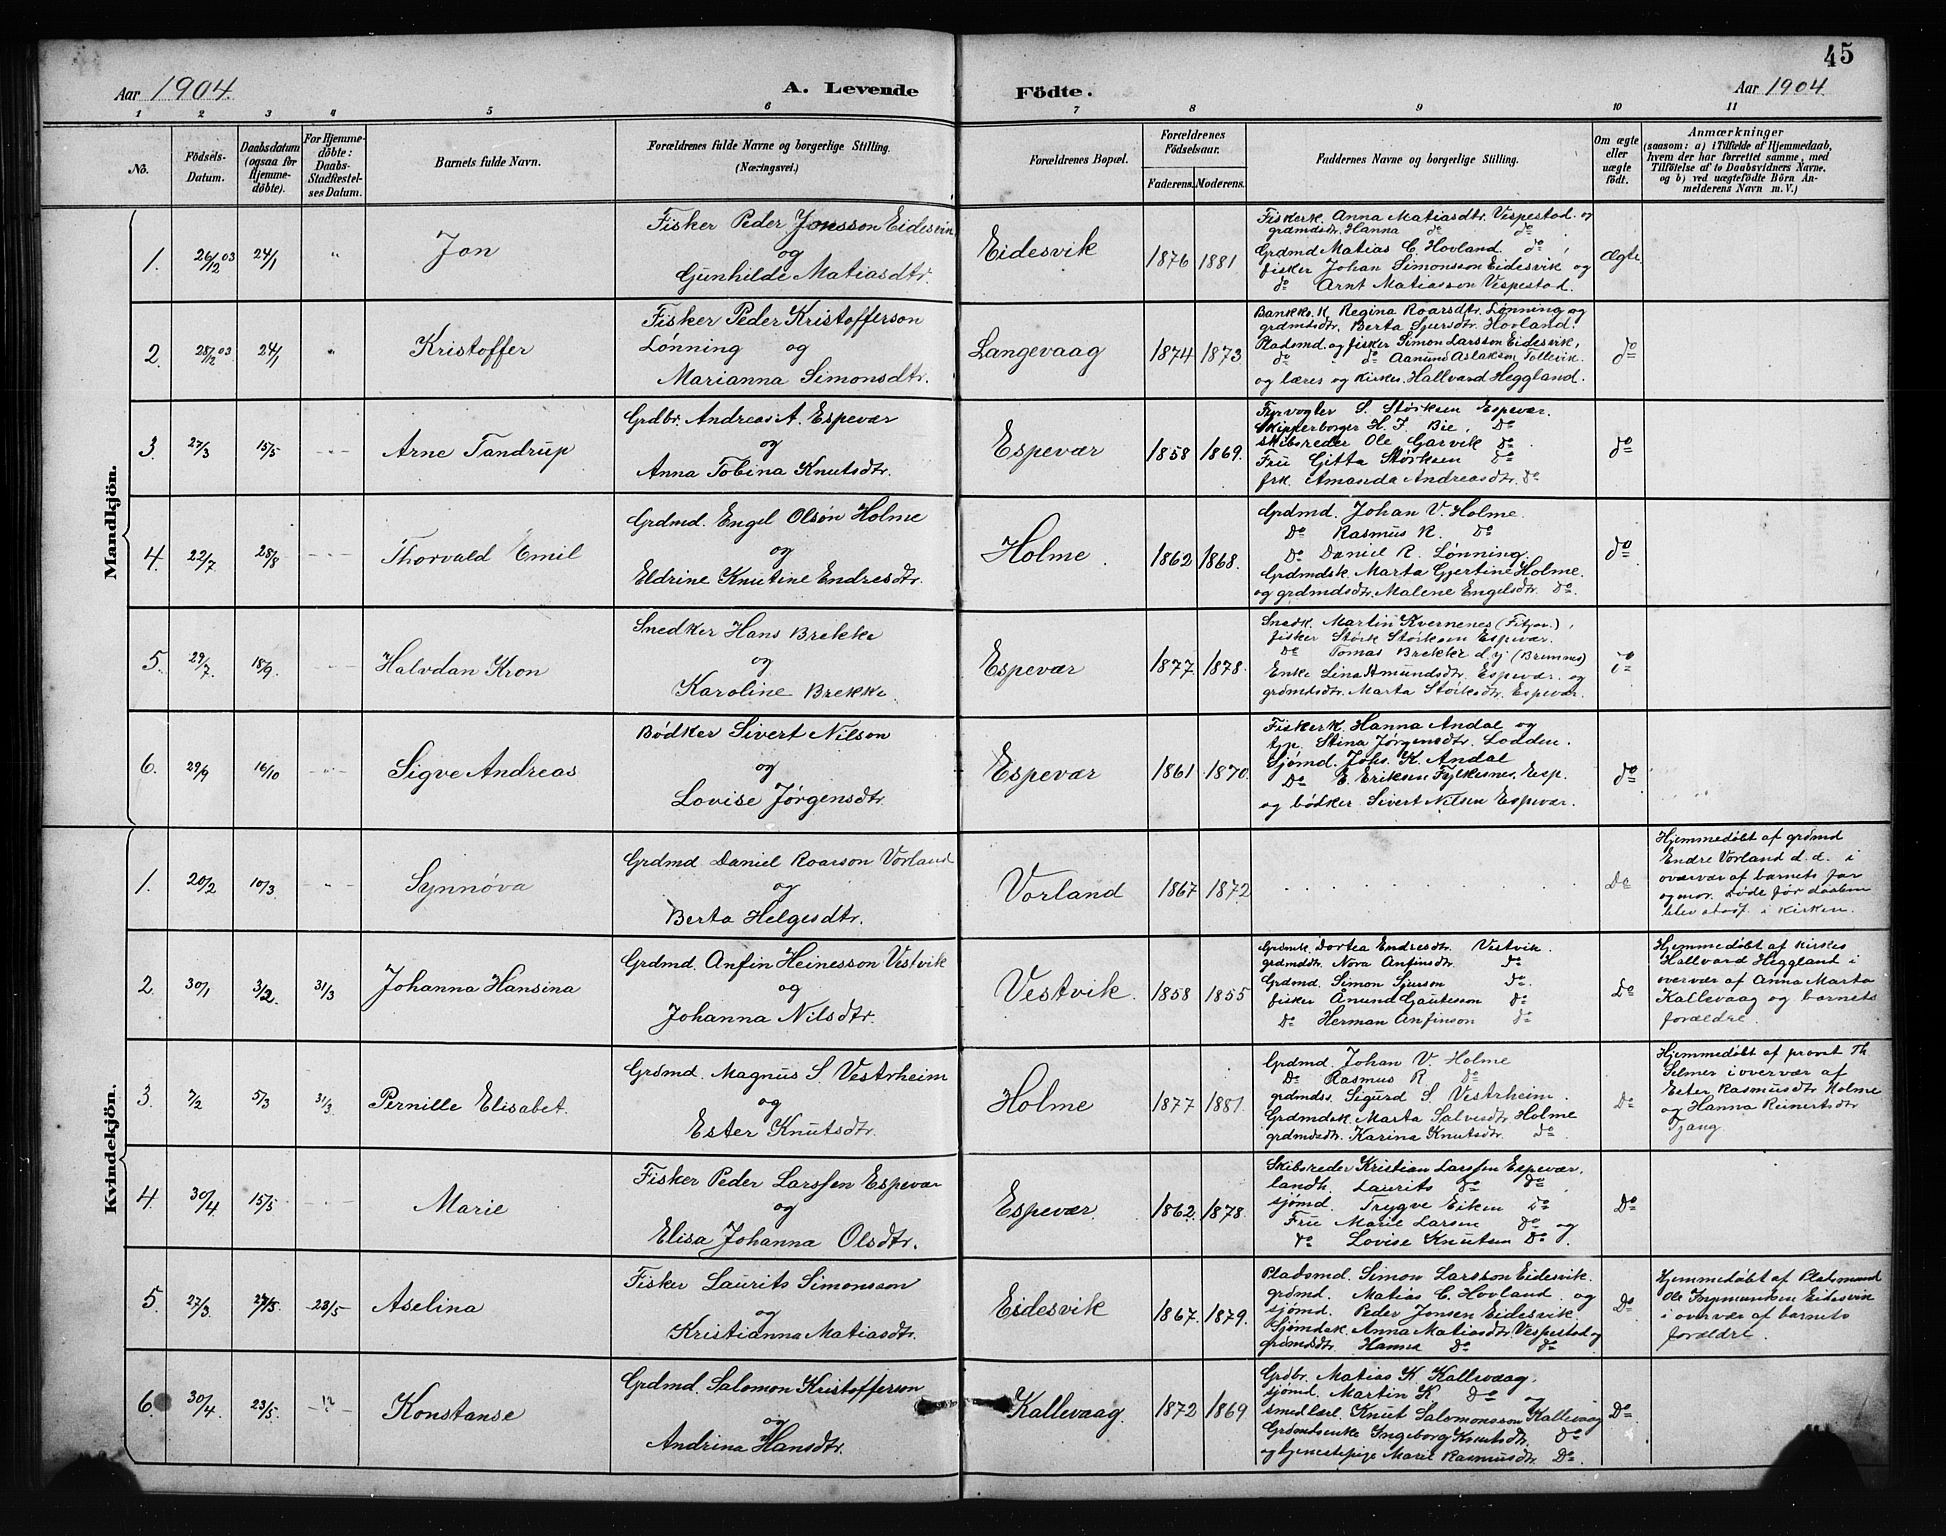 45
Aar 1904.
A. Levende
Födte.
Aar 1904.
1 2 3 4 5 6 7 8 9 10 11
No.
Födsels-Datum.
Daabsdatum (ogsaa for Hjemmedöbte).
For Hjemmedöbte: Daabs-Stadfæstelses Datum.
Barnets fulde Navn.
Forældrenes fulde Navne og borgerlige Stilling.
(Næringsvei.)
Forældrenes Bopæl.
Forældrenes Födselsaar.
Faderens. Moderens.
Faddernes Navne og borgerlige Stilling.
Om ægte eller uægte födt.
Anmærkninger
(saasom: a) i Tilfælde af Hjemmedaab,
hvem der har forrettet samme, med
Tilföielse af to Daabsvidners Navne,
og b) ved uægtefödte Börn An-
melderens Navn m. V.)
Mandkjön.
1. 26/12 03 24/1 " Jon
Fisker Peder Jonsson Eidesvik
og
Gunhilde Matiasdtr.
Eidesvik 1876 1881
Fiskerk. Anna Matiasdtr. Vespestad og
grdmdsdtr. Hanna do do
Grdmd Matias C. Hovland. do
fisker Johan Simonsson Eidesvik og
do Arnt Matiasson Vespestad.
Ægte.
2. 28/12 03 24/1 " Kristoffer
Fisker Peder Kristofferson
Lønning og
Marianna Simonsdtr.
Langevaag 1874 1873
Regina Roarsdtr. Lønning og
grdmdsdtr. Berta Sjursdtr. Hovland.
Pladsmd. og fisker Simon Larsson Eidesvik,
do do Aanund Aslaksen Tollevik
og lærer og kirkes. Hallvard Heggland.
do
3. 27/3 15/5 Arne Tandrup
Grdbr. Andreas A. Espevær
og
Anna Tobina Knutsdtr.
Espevær 1858 1869.
Fyrvogter S. Størksen Espevær.
Skipperborger H. J. Bie, Do
skibsreder Ole Garvik do
Fru Gitta Størksen Do
frk. Amanda Andreasdtr. Do
do
4. 22/7 28/8 Thorvald Emil
Grdmd. Engel Olsøn Holme
og
Eldrine Knutine Endresdtr.
Holme. 1862 1868.
Grdmd. Johan V. Holme.
Do Rasmus R. Do
Do Daniel R. Lønning.
Grdmdsk. Marta Gjertine Holme.
og grdmdsdtr. Malene Engelsdtr. Do.
do
5. 29/7. 18/9. Halvdan Kron
Snedker Hans Brekke
og
Karoline Brekke.
Espevær 1877 1878.
Snedk. Martin Kvernenes (Fitjar.),
fisker Størk Størksen Espevær.
Do Tomas Brekke d.y. (Bremnes)
Enke Lina Amundsdtr. Espevær. og
grdmdsdtr. Marta Størksdtr. Espevær.
do
6. 29/9 16/10 Sigve Andreas
Bødker Sivert Nilson
og
Lovise Jørgensdtr.
Espevær 1861 1870.
Fiskerk. Hanna Andal og
tjp. Stina Jørgensdtr. Lodden.
Sjømd. Johs. K. Andal
Do E. Eriksen Fylkesnes, Esp.
og bødker Sivert Nilsen Espevær.
do
Kvindekjön.
1. 20/2 10/3 Synnøva
Grdmd Daniel Roarson Vorland
og
Berta Helgesdtr.
Vorland 1867 1872
Do
Hjemmedøbt af grdmd
Endre Vorland d.d. i
overvær af barnets far
og mor. Døde før daaben
blev stadf. i kirken.
2. 30/1 3/2. 31/3 Johanna Hansina
Grdmd. Anfin Heinesson Vestvik
og
Johanna Nilsdtr.
Vestvik. 1858 1855
Grdmk. Dortea Endresdtr. Vestvik.
grdmddtr. Nora Anfinsdtr Do
Grdmd. Simon Sjurson Do.
fisker Anund Gautesson do
Do Herman Anfinson do
Do
Hjemmedøbt af kirkes
Hallvard Heggland i
overvær af Anna Marta
Kallevaag og barnets
forældre.
3. 7/2 5/3 31/3 Pernille Elisabet.
Grdmd. Magnus S. Vestrheim
og
Ester Knutsdtr.
Holme 1877 1881.
Grdmd Johan V. Holme
Do Rasmus R. Do
grdmdss. Sigurd S. Vestrheim.
Grdmdsk. Marta Salvesdtr Holme
grdmdsdtr. Karina Knutsdtr. do
Do
Hjemmedøbt af provst Th
Selmer i overvær af
Ester Rasmusdtr Holme
og Hanna Reinertsdtr
Tjang.
4. 30/4 15/5 Marie
Fisker Peder Larssen Espevær
og
Elisa Johanna Olsdtr.
Espevær. 1862. 1878.
Skibsreder Kristian Larssen Espevær.
landh. Laurits do do
sjømd. Trygve Eiken do
Fru Marie Larsen do og
do Lovise Knutsen Do.
Do
5. 27/3. 27/3. 23/5 Aselina
Fisker Laurits Simonsson
og
Kristianna Matiasdtr.
Eidesvik 1867. 1879.
Pladsmd. Simon Larsson Eidesvik.
grdmd. Matias C. Hovland. og
sjømd. Peder Jonsen Eidesvik
Sjømdsk. Anna Matiasdtr. Vespestad og
grdmdsdtr Hanna Do do
Do
Hjemmedøbt af Pladsmand
Ole Ingmundsen Eidesvik
i overvær af barnets
forældre.
6. 30/4. 23/5. Konstanse
Grdmd. Salomon Kristofferson
og
Andrina Hansdtr.
Kallevaag. 1872 1869
Grdbr. Matias K. Kallevaag,
sjømd. Martin K do og
smedlærl. Knut Salomonsson Kallevaag
Grdmdsenke Ingeborg Knutsdtr. do
og tjenestepige Marie Rasmusdtr. Do
Do